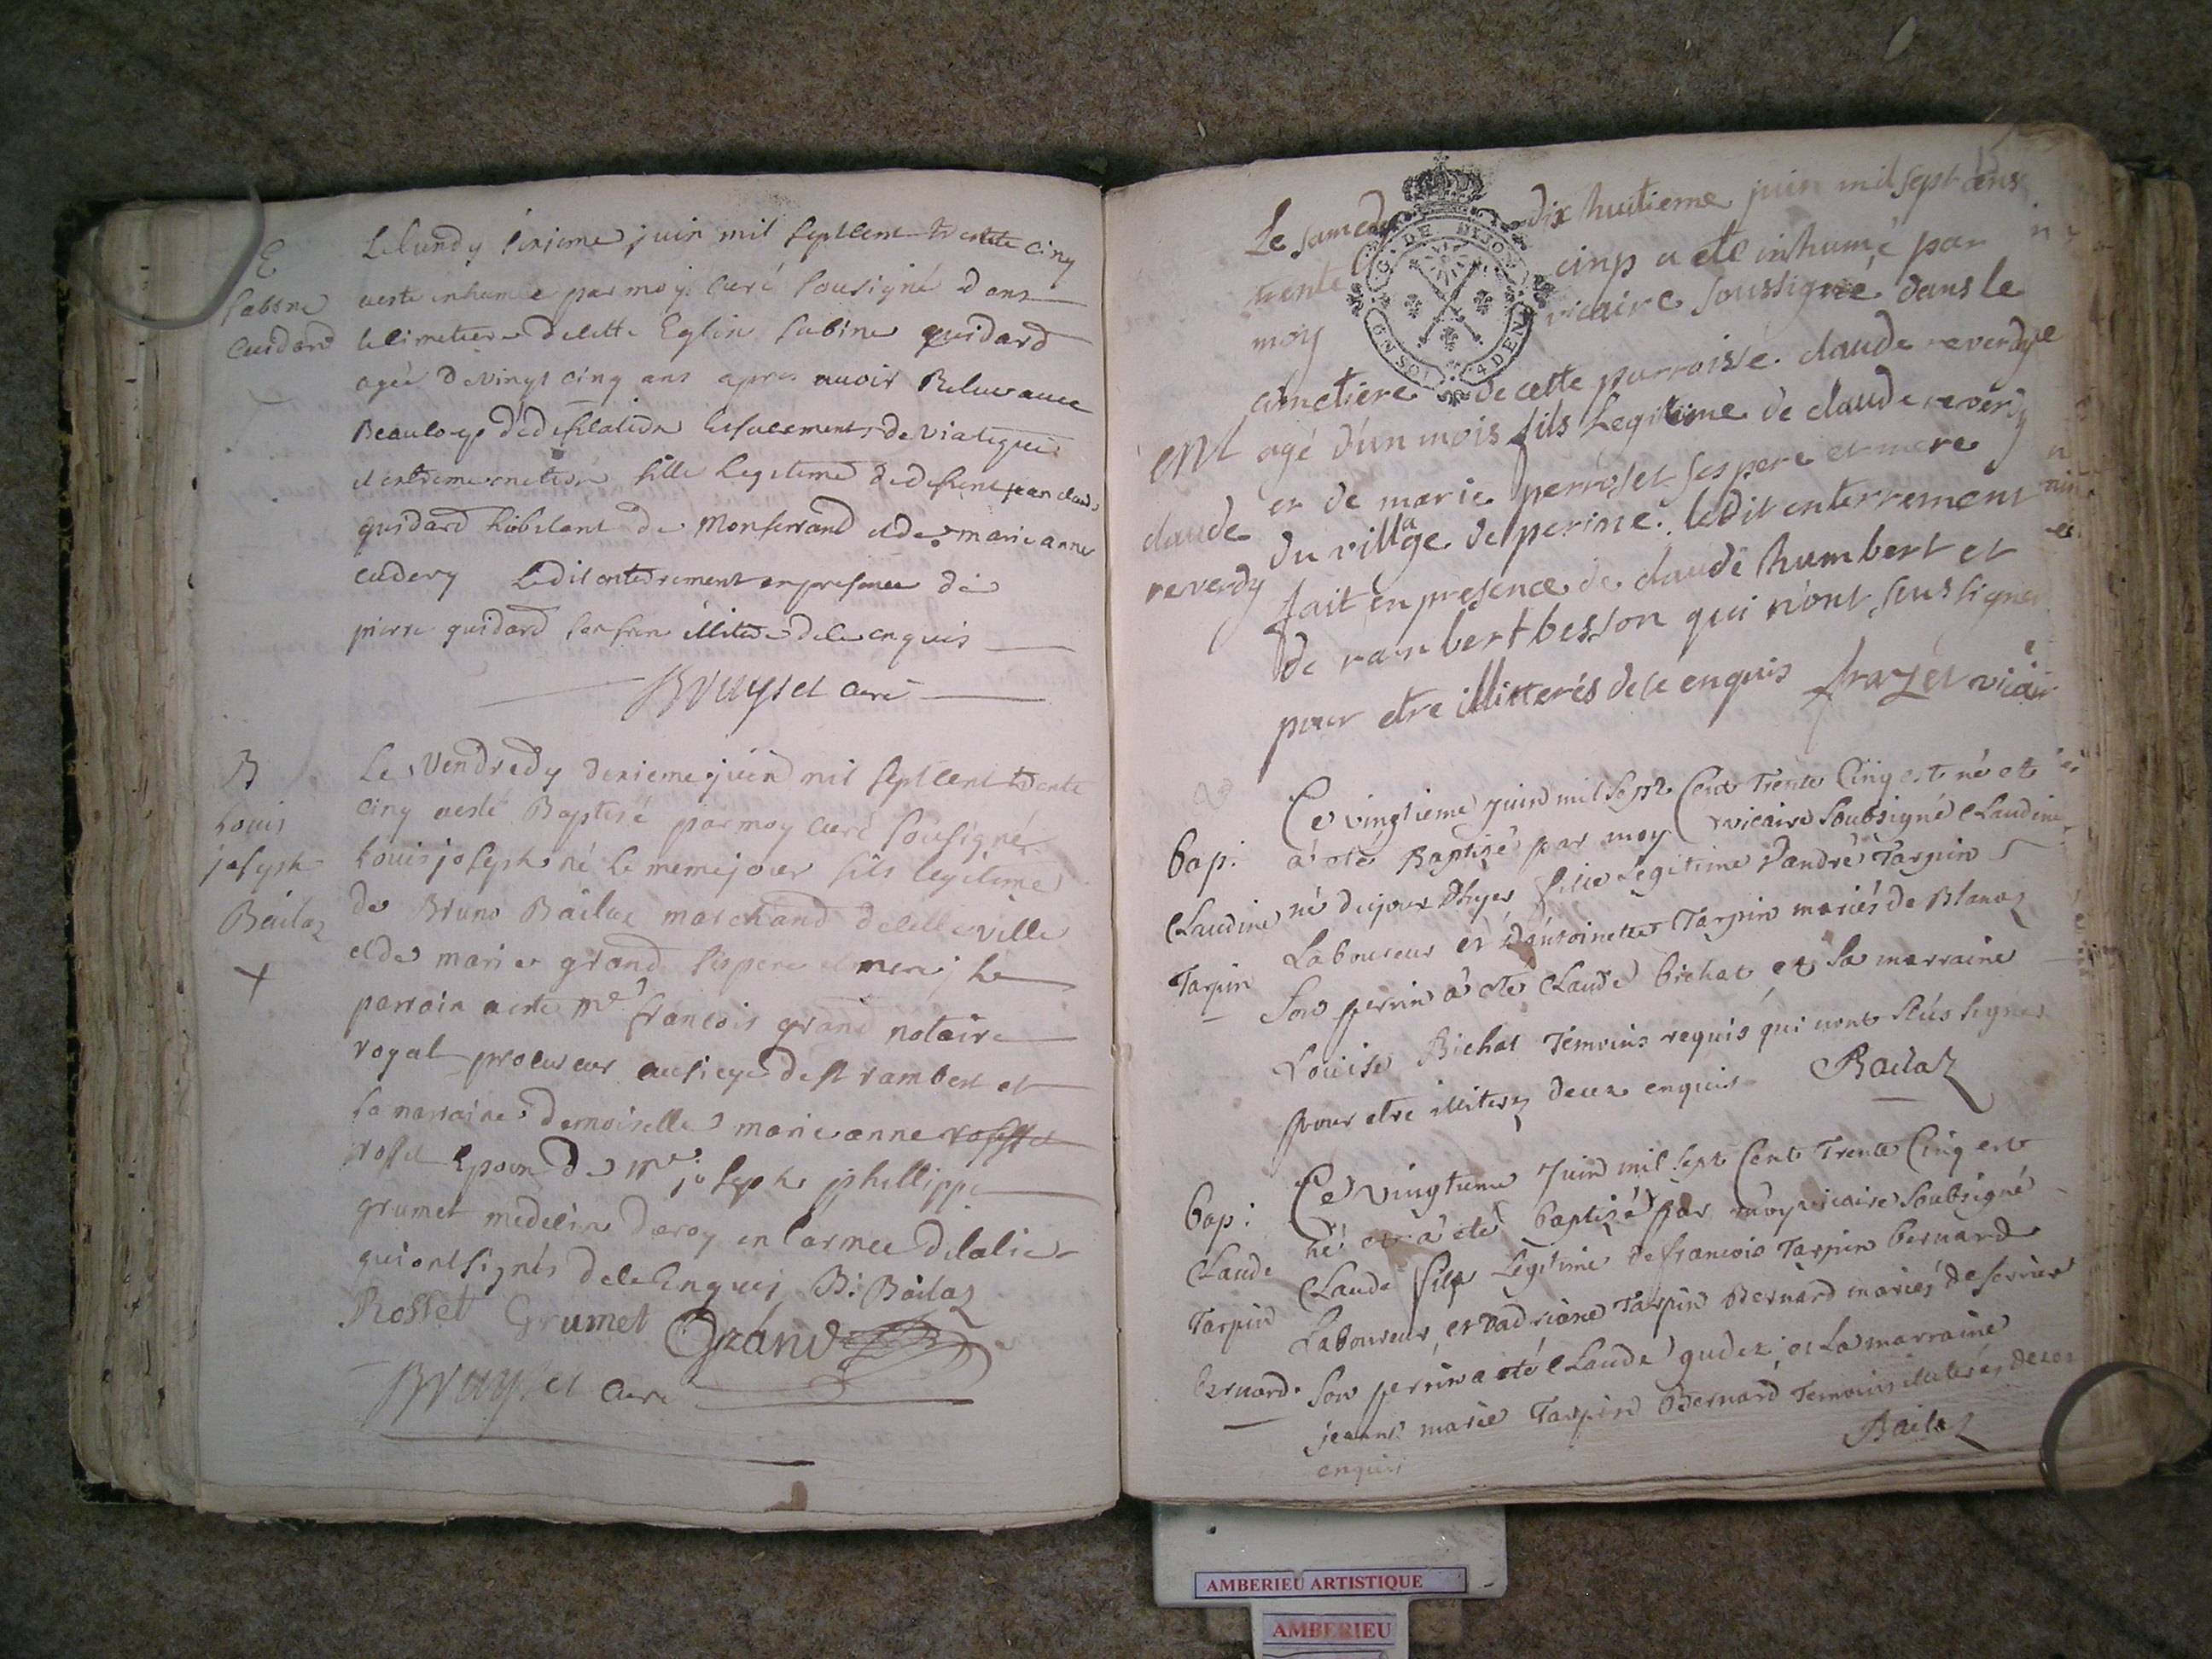 E
Sabine
Cuidard
Le lundy sixieme juin mil septcent trente cinq
aesté inhumée par moy curé sousigné dans
le cimetiere de cette Eglise sabine guidard
agée de vingt cinq ans apres avoir Recu avec
Beaucoup dédification les sacements de viatique
et extreme onction fille legitime de defunt jean claude
guidard habitant de Monferrand et de marie anne
cudery Ledit enterrement en presence de
pierre guidard son frere illitere de ce enquis
Bruyset curé
B
Louis
joseph
Bailaz
+
Le Vendredy dixieme juin mil septcent trente
cinq aesté Baptisé par moy curé sousigné
Louis joseph né le meme jour fils legitime
de Bruno Bailaz marchand de cette ville
et de marie grand ses pere et mere; Le
parrain a esté me françois grand notaire
royal procureur au siege de st rambert et
la marraine demoiselle marie anne rosset
rosset Epouse de me joseph phillippe
grumet medecin du roy en l'armee d'italie
qui ont signés de ce enquis B: Bailaz
Rosset Grumet Grand
Bruyset curé
Le samedy dix huitieme juin mil sept cens
trente cinp a eté inhumé par
moy vicaire soussigné dans le
cimetiere de cette parroisse. claude reverdy
ent
claude
reverdy
agé d'un mois fils Legitime de claude reverdy
et de marie perroset ses pere et mere
du village de perine. ledit enterrement
fait en presence de claude humbert et
de rambert besson qui n'ont sous signer
pour etre illitterés de ce enquis frazet vicair
Bap:
Claudine
Tarpin
Ce vingtieme Juin mil sept Cent Trente Cinq est né et
a été Baptisé par moy vicaire soubsigné Claudine
né du jour d'hyer fille Legitime d'andré Tarpin
Laboureur et d'antoinette Tarpin mariés de Blanaz
Son perrin a eté Claude Bichat et la marraine
Louise Bichat Temoins requis qui n'ont sçus signer
pour etre illiterez deux enquis Bailaz
Bap:
Claude
Tarpin
bernard.
Ce vingtieme Juin mil sept Cent Trente Cinq est
né et a eté baptizé par moy vicaire soubsigné
Claude fils Legitime de francois Tarpin bernard
Laboureur, et d'adriane Tarpin Bernard mariés de
Son perrin a eté Claude gudez et la marraine
jeanne marie Tarpin Bernard Temoins illiterés de ce
enquis Bailaz
AMBERIEU ARTISTIQUE
AMBERIEU